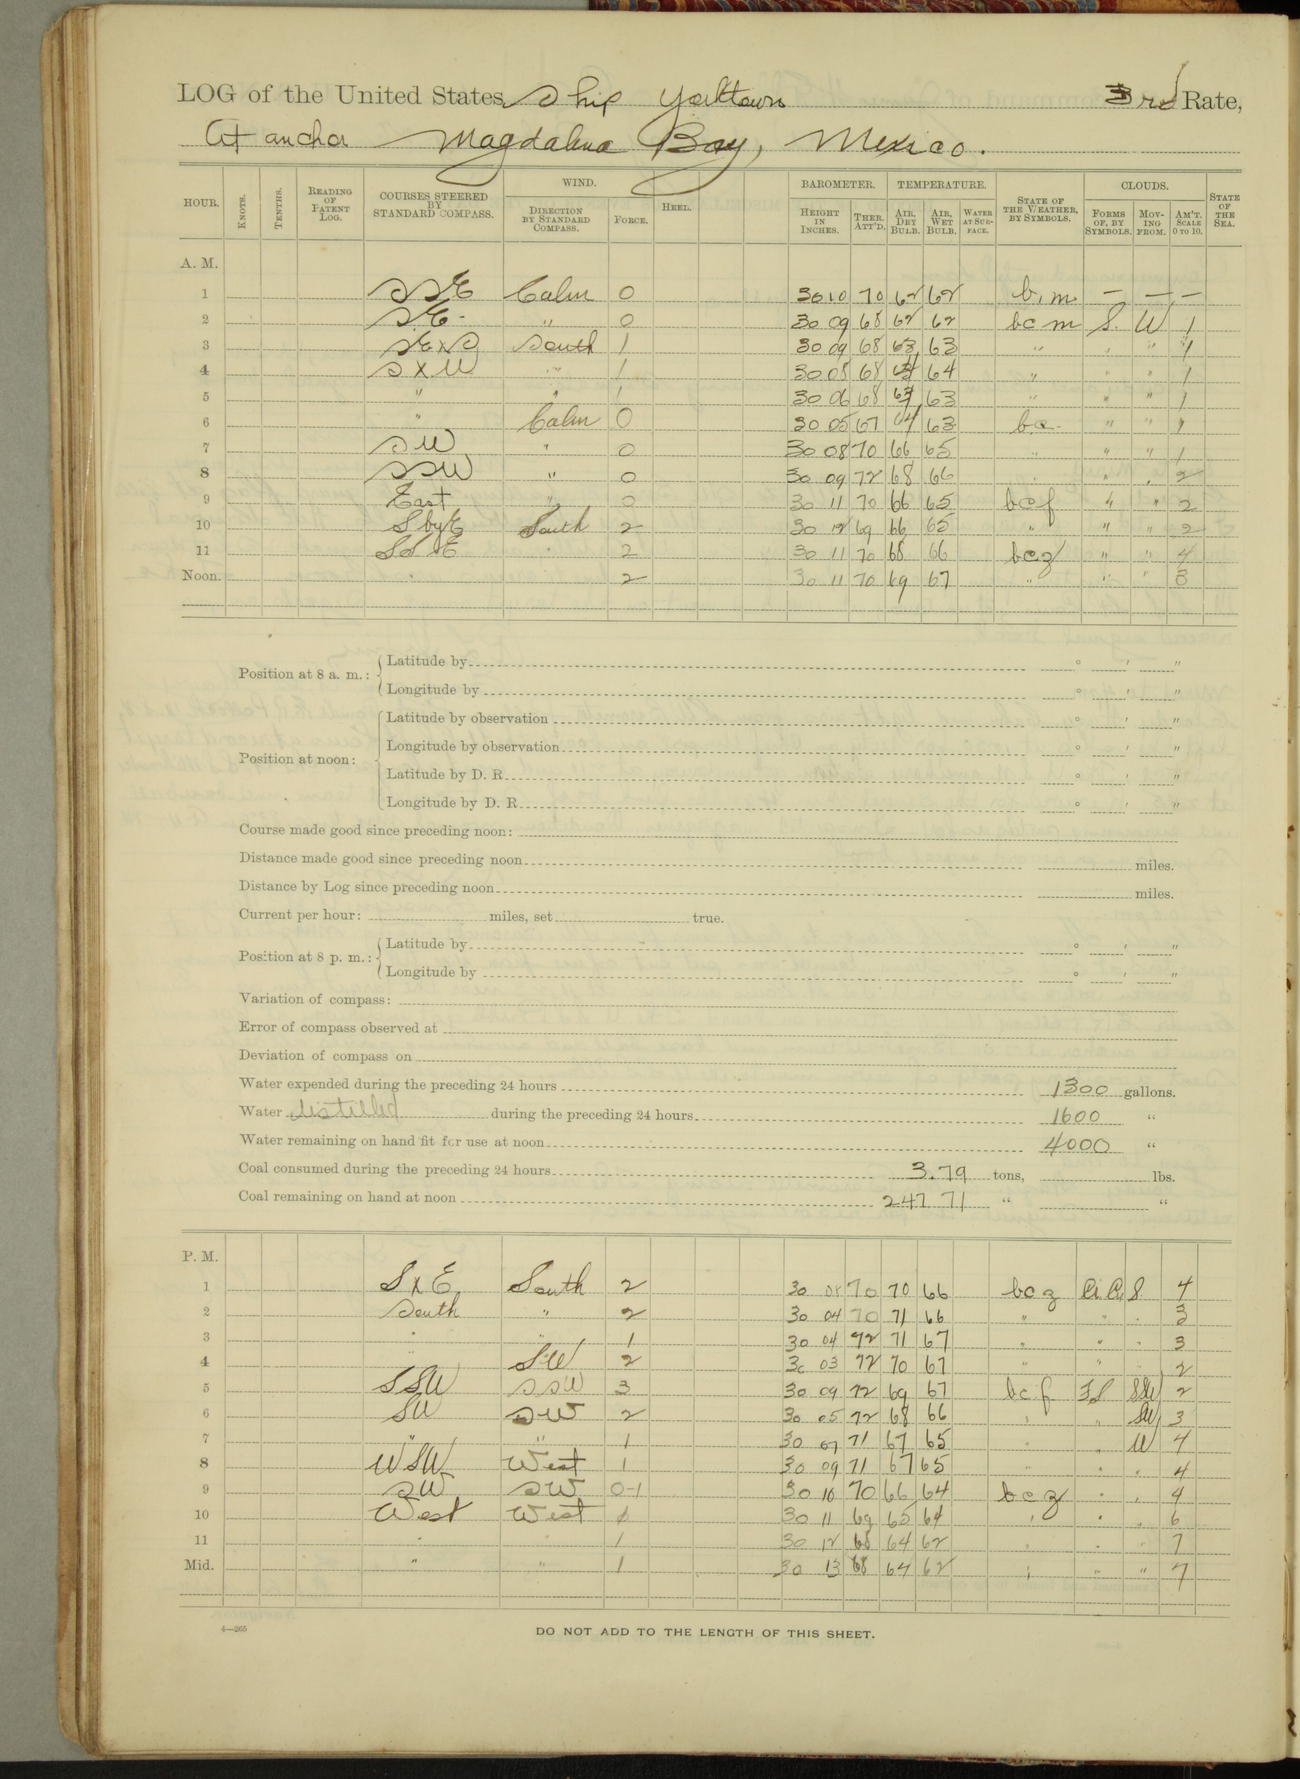 LOG of the United States Ship Yorktown 3rd Rate,
At anchor Magdalena Bay, Mexico.
HOUR. KNOTS. TENTHS. READING OF PATENT LOG. COURSES STEERED BY STANDARD COMPASS. WIND. DIRECTION BY STANDARD COMPASS. FORCE. HEEL. BAROMETER. HEIGHT IN INCHES. THER. ATT'D. TEMPERATURE. AIR, DRY BULB. AIR, WET BULB. WATER AT SURFACE. STATE OF THE WEATHER, BY SYMBOLS. CLOUDS. FORMS OF, BY SYMBOLS. MOVING FROM. AM'T. SCALE 0 TO 10. STATE OF THE SEA.
A. M.
1 SSE Calm 0 30 10 70 62 62 b.m. — — —
2 SE " 0 30 09 68 62 62 bcm S. W 1
3 SExS South 1 30 09 68 63 63 " " " 1
4 SxW " 1 30 08 68 64 64 " " " 1
5 " " 1 30 06 68 63 " " " 1
6 " Calm 0 30 05 67 64 63 bc " " "
7 SW " 0 30 08 70 66 65 " " " 1
8 SSW " 0 30 09 72 68 66 " " " 2
9 East " 0 30 11 70 66 65 bcf " " 2
10 SbyE South 2 30 12 69 66 65 " " " 2
11 SSE " 2 30 11 70 68 66 bcz " " 4
Noon. " 2 30 11 70 69 67 " " " 3
Position at 8 a. m.: Latitude by ° ' "
Longitude by ° ' "
Position at noon: Latitude by observation ° ' "
Longitude by observation ° ' "
Latitude by D. R. ° ' "
Longitude by D. R. ° ' "
Course made good since preceding noon:
Distance made good since preceding noon miles.
Distance by Log since preceding noon miles.
Current per hour: miles, set true.
Position at 8 p. m.: Latitude by ° ' "
Longitude by ° ' "
Variation of compass:
Error of compass observed at
Deviation of compass on
Water expended during the preceding 24 hours 1300 gallons.
Water distilled during the preceding 24 hours 1600 "
Water remaining on hand fit for use at noon 4000 "
Coal consumed during the preceding 24 hours 3.79 tons, lbs.
Coal remaining on hand at noon 247 71 " "
P. M.
1 SxE South 2 30 08 70 70 66 bcz S 4
2 South " 2 30 04 70 71 66 " " " 3
3 " " 1 30 04 72 71 67 " " " 3
4 " SW 2 30 03 72 70 67 " " " 2
5 SSW SSW 3 30 09 72 69 67 bcf SW 2
6 SW SW 2 30 05 72 68 66 " " SW 3
7 " " 1 30 07 71 67 65 " " W 4
8 WSW West 1 30 09 71 67 65 " " " 4
9 SW SW 0-1 30 10 70 66 64 bcz " " 4
10 West West 1 30 11 69 65 64 " " " 6
11 " " 1 30 12 68 64 62 " " " 7
Mid. " " 1 30 13 68 64 62 " " " 7
4—265
DO NOT ADD TO THE LENGTH OF THIS SHEET.